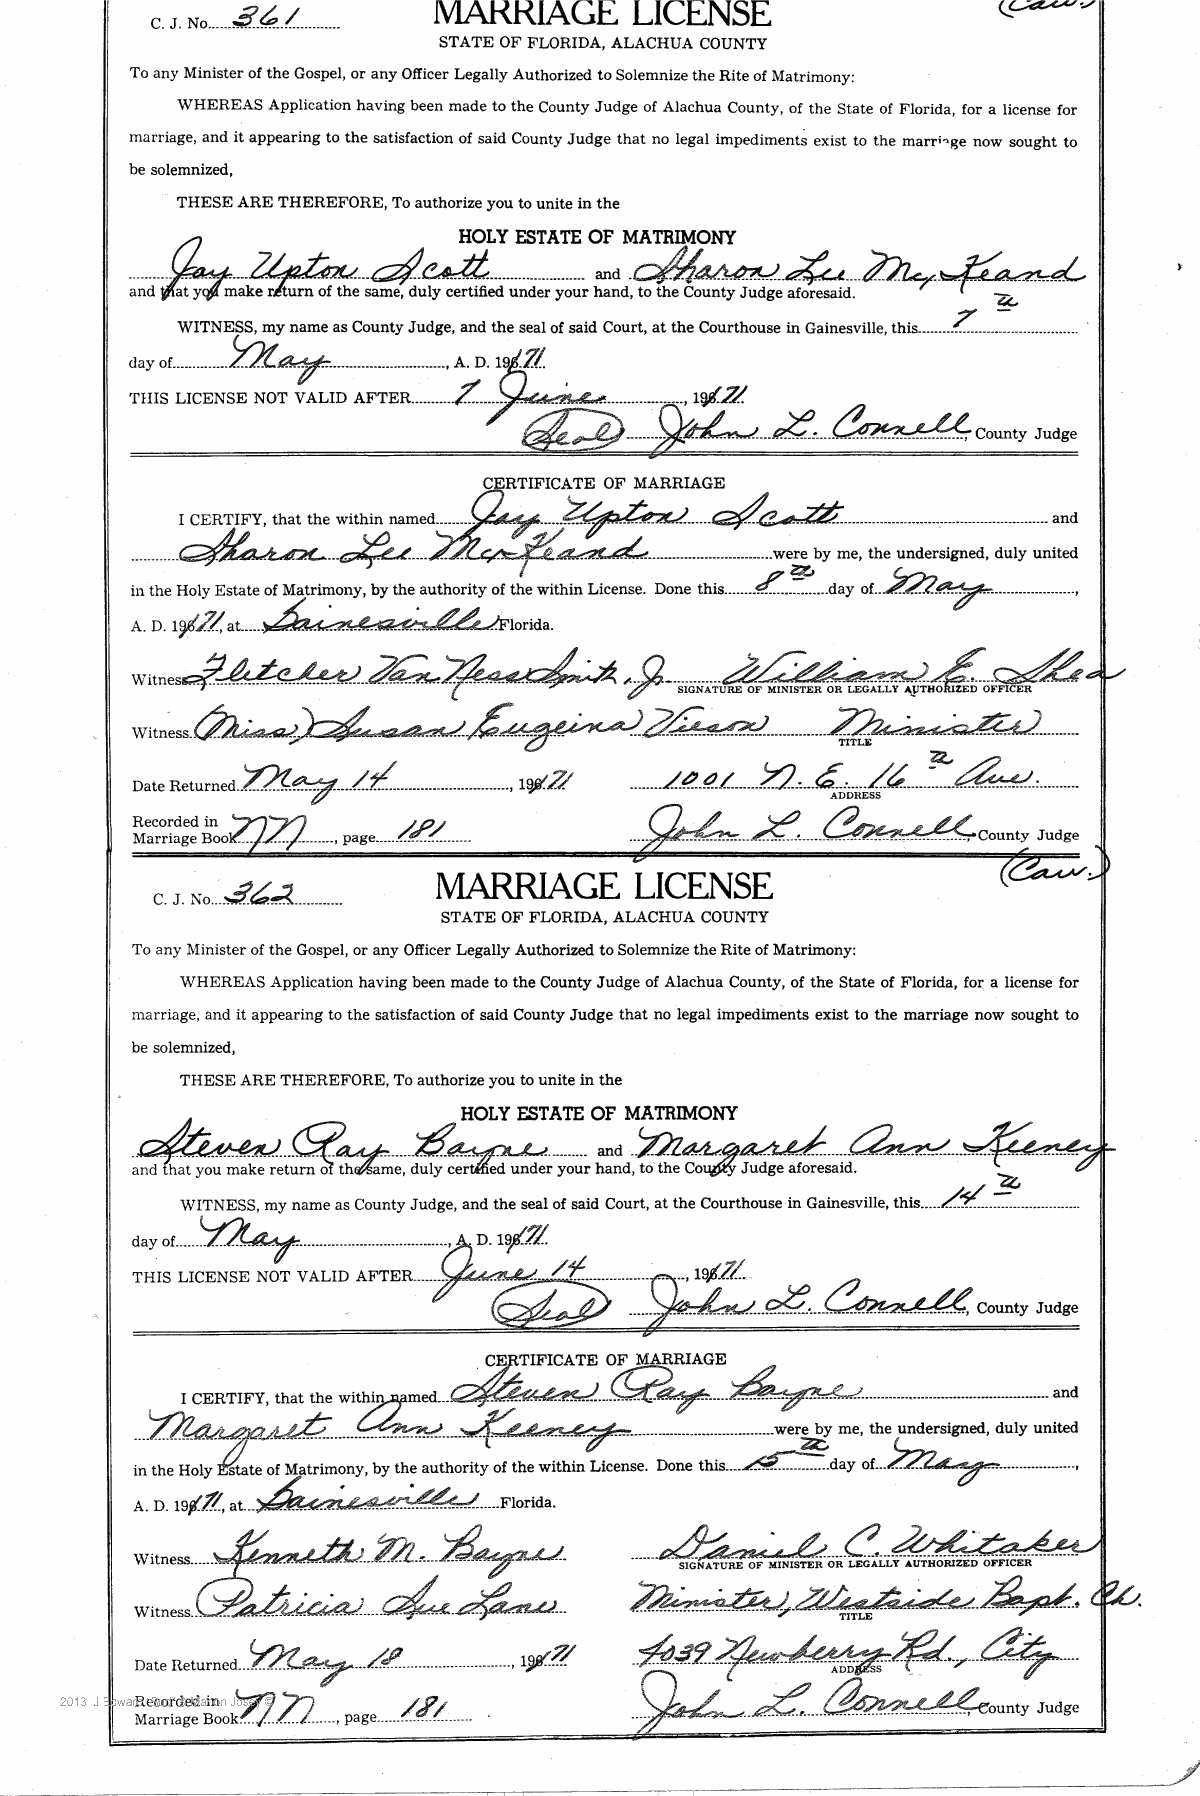 (Cau.)
C. J. No. 361 MARRIAGE LICENSE
STATE OF FLORIDA, ALACHUA COUNTY
To any Minister of the Gospel, or any Officer Legally Authorized to Solemnize the Rite of Matrimony:
WHEREAS Application having been made to the County Judge of Alachua County, of the State of Florida, for a license for
marriage, and it appearing to the satisfaction of said County Judge that no legal impediments exist to the marriage now sought to
be solemnized,
THESE ARE THEREFORE, To authorize you to unite in the
HOLY ESTATE OF MATRIMONY
Jay Upton Scott and Sharon Lee McKeand
and that you make return of the same, duly certified under your hand, to the County Judge aforesaid.
WITNESS, my name as County Judge, and the seal of said Court, at the Courthouse in Gainesville, this 7th
day of May, A. D. 1971.
THIS LICENSE NOT VALID AFTER 7 June, 1971.
(Seal) John L. Connell, County Judge
CERTIFICATE OF MARRIAGE
I CERTIFY, that the within named Jay Upton Scott and
Sharon Lee McKeand were by me, the undersigned, duly united
in the Holy Estate of Matrimony, by the authority of the within License. Done this 8th day of May,
A. D. 1971, at Gainesville Florida.
Witness Fletcher Van Ness Smith, Jr. William E. Shea
SIGNATURE OF MINISTER OR LEGALLY AUTHORIZED OFFICER
Witness (Miss) Susan Eugeina Vieson Minister
TITLE
Date Returned May 14, 1971 1001 N. E. 16th Ave.
ADDRESS
Recorded in
Marriage Book NN, page 181 John L. Connell, County Judge
(Cau.)
C. J. No. 362 MARRIAGE LICENSE
STATE OF FLORIDA, ALACHUA COUNTY
To any Minister of the Gospel, or any Officer Legally Authorized to Solemnize the Rite of Matrimony:
WHEREAS Application having been made to the County Judge of Alachua County, of the State of Florida, for a license for
marriage, and it appearing to the satisfaction of said County Judge that no legal impediments exist to the marriage now sought to
be solemnized,
THESE ARE THEREFORE, To authorize you to unite in the
HOLY ESTATE OF MATRIMONY
Steven Ray Bayne and Margaret Ann Keeney
and that you make return of the same, duly certified under your hand, to the County Judge aforesaid.
WITNESS, my name as County Judge, and the seal of said Court, at the Courthouse in Gainesville, this 14th
day of May, A. D. 1971.
THIS LICENSE NOT VALID AFTER June 14, 1971.
(Seal) John L. Connell, County Judge
CERTIFICATE OF MARRIAGE
I CERTIFY, that the within named Steven Ray Bayne and
Margaret Ann Keeney were by me, the undersigned, duly united
in the Holy Estate of Matrimony, by the authority of the within License. Done this 15th day of May,
A. D. 1971, at Gainesville Florida.
Witness Kenneth M. Bayne Daniel C. Whitaker
SIGNATURE OF MINISTER OR LEGALLY AUTHORIZED OFFICER
Witness Patricia Sue Lane Minister, Westside Bapt. Ch.
TITLE
Date Returned May 18, 1971 4039 Newberry Rd., City
ADDRESS
2013 J
Recorded in
Marriage Book NN, page 181 John L. Connell County Judge